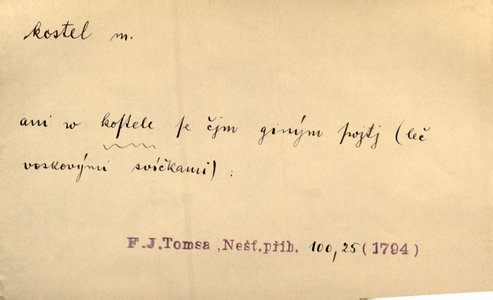 kostel m.
ani w koſtele ſe čjm giným pojtj (leč
voskovými svíčkami) :
F.J.Tomsa ,Nešť.příb. 100,25 (1794)